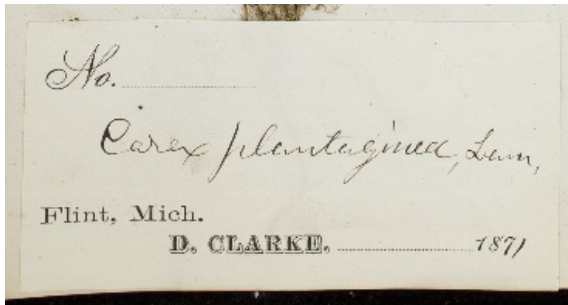 No.
Carex plantaginea, Lam,
Flint, Mich.
D. CLARKE. 1871